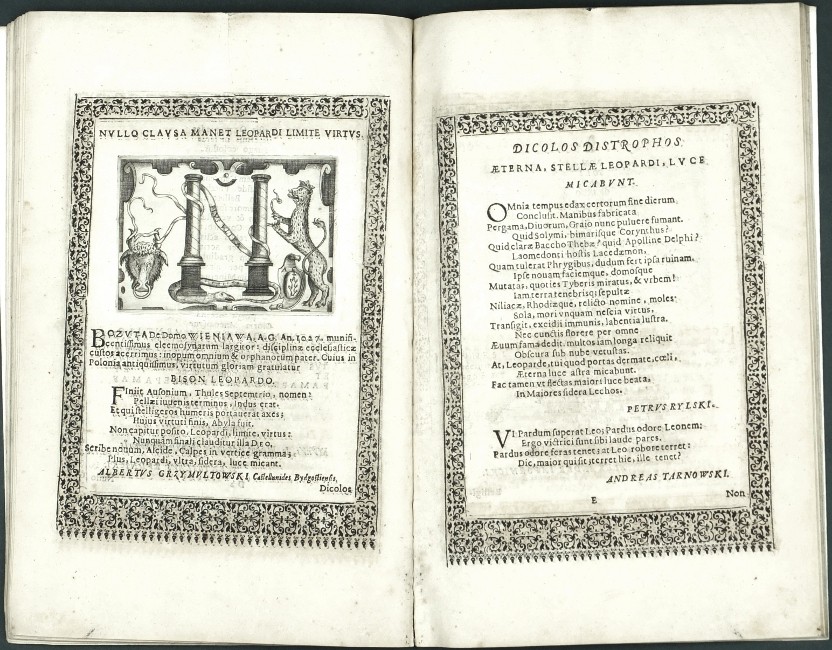 NVLLO CLAVSA MANET LEOPARDI LIMITE VIRTVS.
BOZVTA De Domo WIENIAWA, A.G. An. 1027. munifi-
centissimus eleemosynarum largitor: disciplinæ ecclesiasticæ
custos acerrimus: inopum omnium & orphanorum pater. Cuius in
Polonia antiquissimus, virtutum gloriam gratulatur
BISON LEOPARDO.
Finijt Ausonium, Thules Septemtrio, nomen:
Pellæi iuvenis terminus, Indus erat.
Et qui stelligeros humeris portauerat axes;
Hujus virtuti finis, Abyla fuit.
Non capitur posito, Leopardi, limite, virtus:
Nunquam finali clauditur illa Deo.
Scribe notum, Alcide, Calpes in vertice gramma;
Plus, Leopardi, vltra, sidera, luce micant.
ALBERTVS GRZYMVLTOWSKI, Castellanides, Bydgostiensis.
Dicolos
DICOLOS DISTROPHOS.
ÆTERNA, STELLÆ LEOPARDI, LVCE
MICABVNT.
OMnia tempus edax certorum fine dierum
Conclusit. Manibus fabricata
Pergama, Diuorum, Graio nunc puluere fumant.
Quid Solymi, bimarisque Corynthus?
Quid claræ Baccho Thebæ? quid Apolline Delphi?
Laomedonti hostis Lacedæmon,
Quam tulerat Phrygibus, dudum fert ipsa ruinam.
Ipse nouam faciemque, domosque
Mutatas, quoties Tyberis miratus, & vrbem!
Iam terra tenebrisq; sepultæ
Niliacæ, Rhodiæque, relicto nomine, moles:
Sola, mori vnquam nescia virtus,
Transigit, excidii immunis, labentia lustra.
Nec cunctis florere per omne
Æuum fama dedit. multos iam longa reliquit
Obscura sub nube vetustas.
At, Leoparde, tui quod portas dermate, cœli,
Æterna luce astra micabunt.
Fac tamen vt flectas maiori luce beata,
In Maiores sidera Lechos.
PETRVS RYLSKI.
VI Pardum superat Leo; Pardus odore Leonem:
Ergo victrici sunt sibi laude pares.
Pardus odore feras tenet; at Leo robore terret:
Dic, maior qui sit; terret hic, ille tenet?
ANDREAS TARNOWSKI.
E
Non